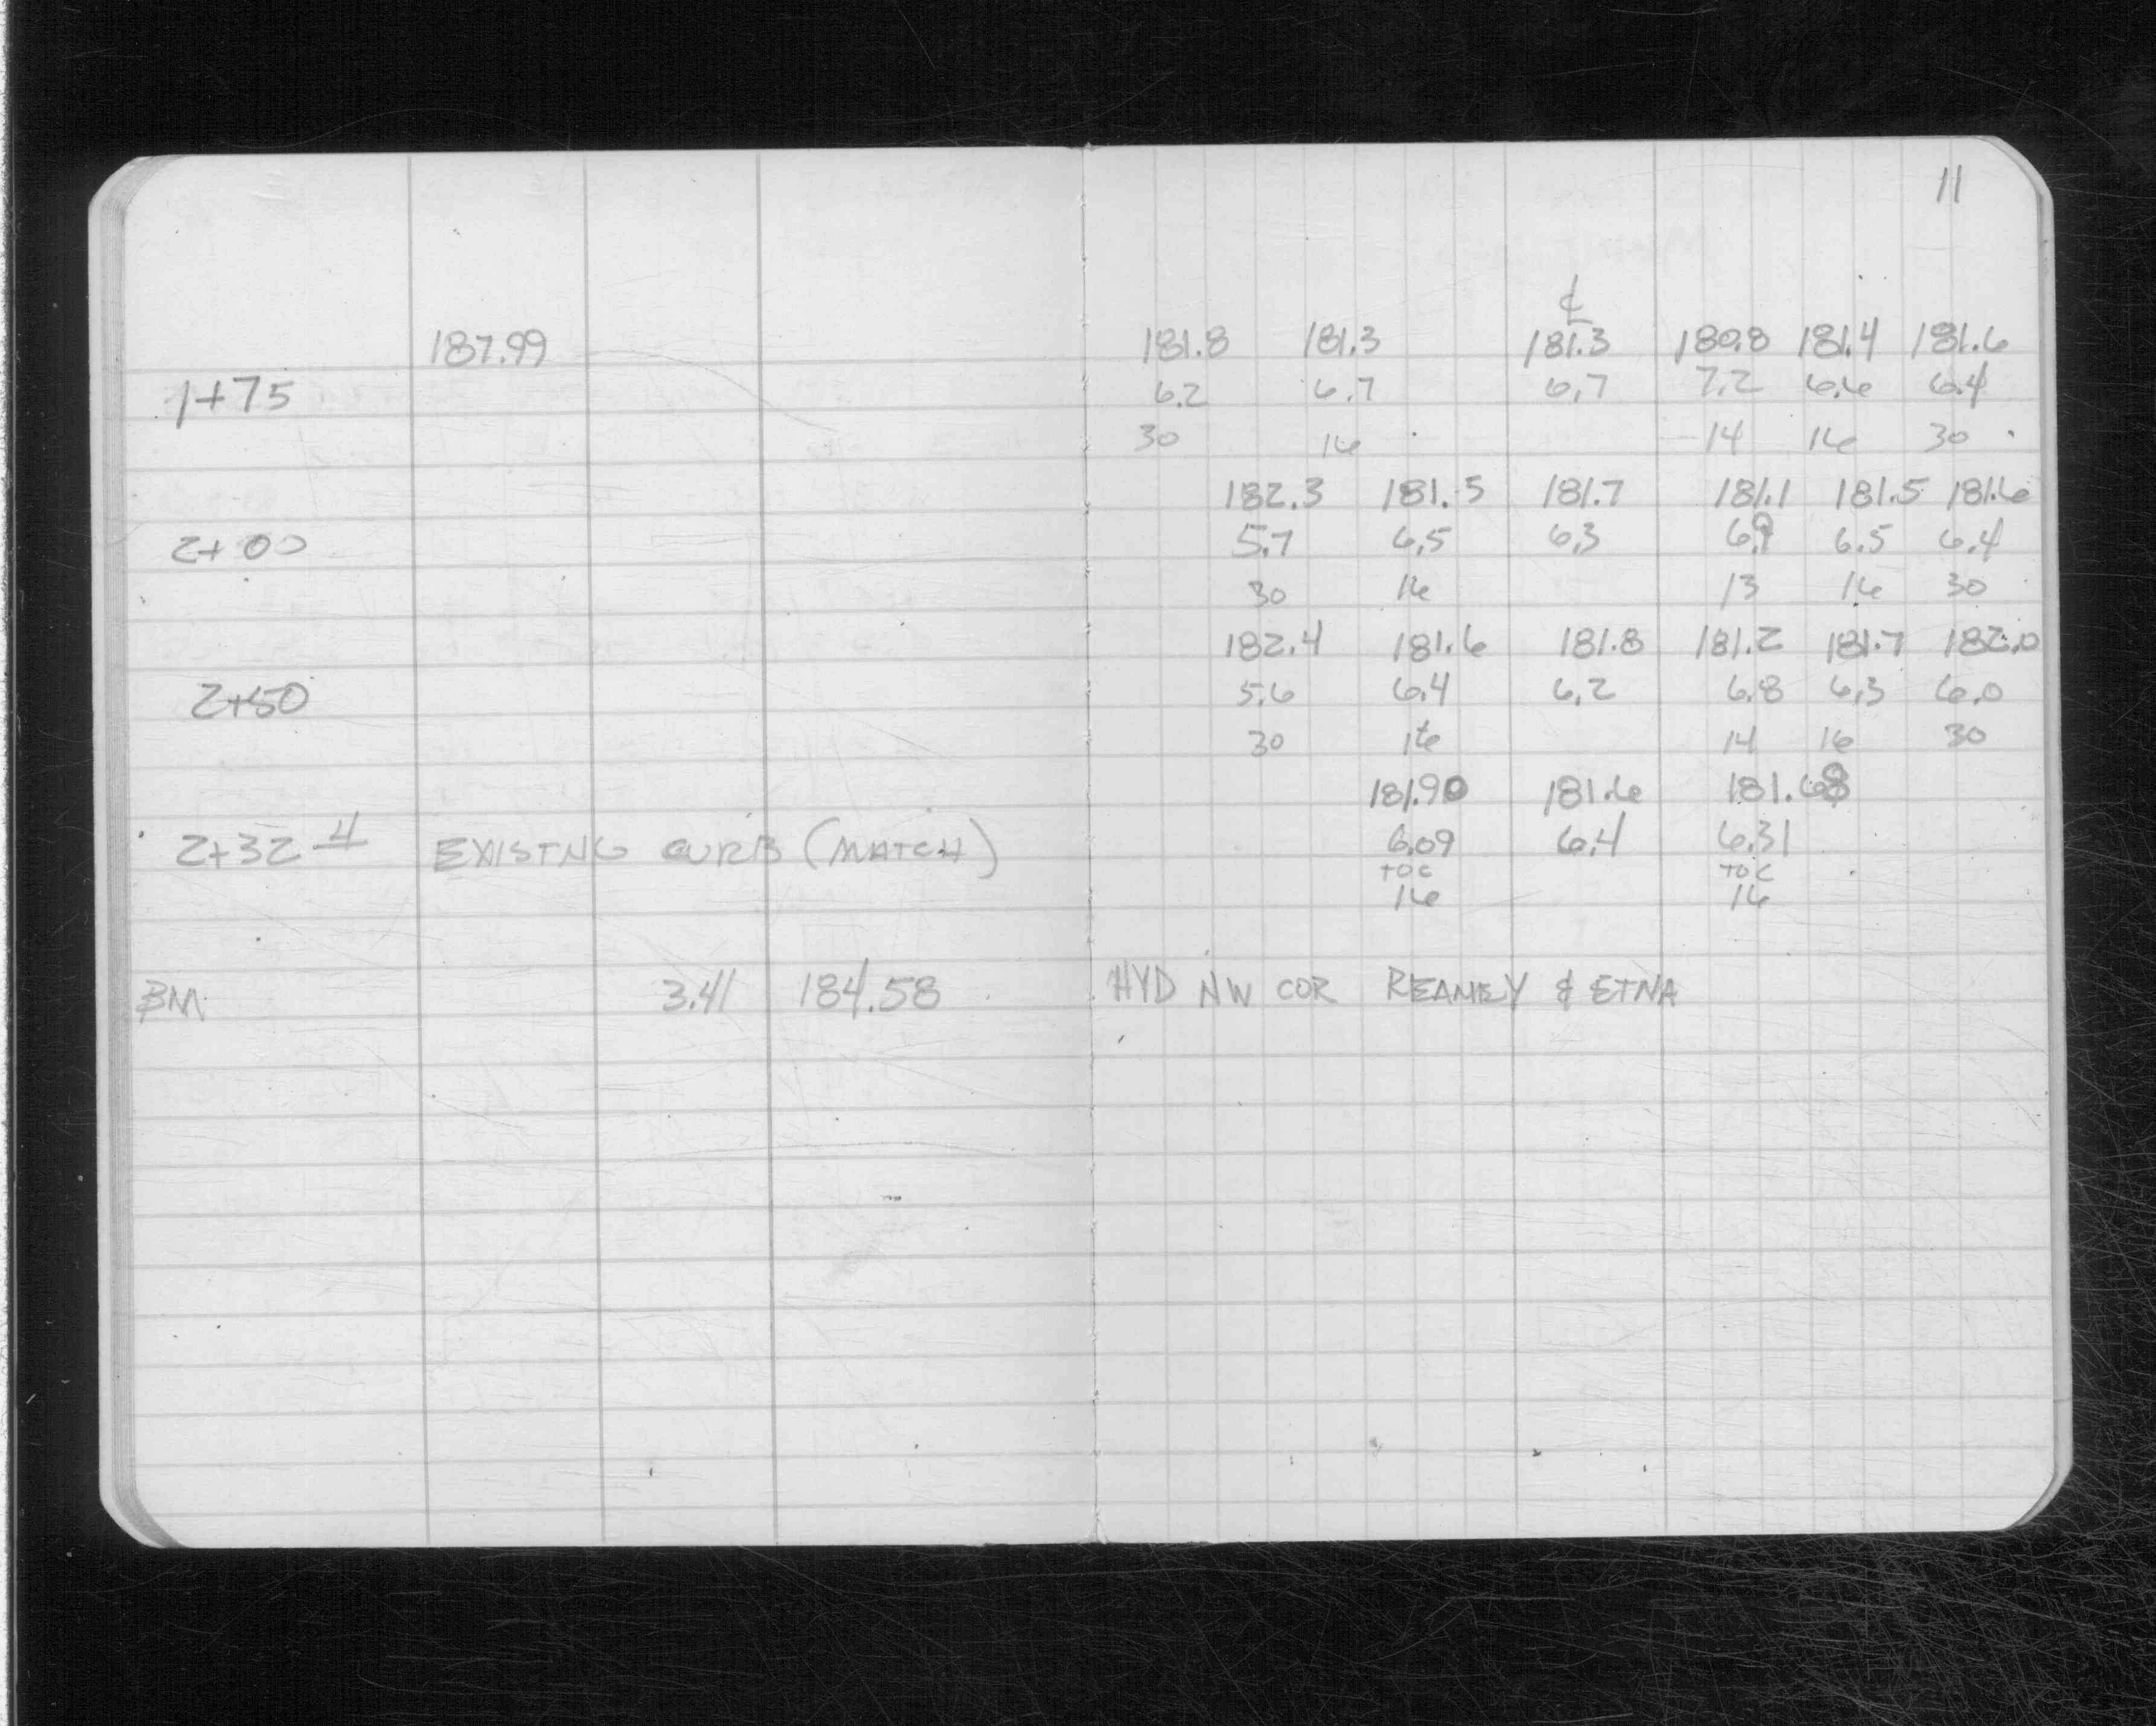 11
℄
187.99 181.8 181.3 181.3 180.8 181.4 181.6
1+75 6.2 6.7 6.7 7.2 6.6 6.4
30 16 14 16 30
182.3 181.5 181.7 181.1 181.5 181.6
2+00 5.7 6.5 6.3 6.9 6.5 6.4
30 16 13 16 30
182.4 181.6 181.8 181.2 181.7 182.0
2+50 5.6 6.4 6.2 6.8 6.3 6.0
30 16 14 16 30
181.90 181.6 181.68
2+32 4 EXISTNG CURB (MATCH) 6.09 6.4 6.31
TOC TOC
16 16
BM 3.41 184.58 HYD NW COR REAMEY & ETNA